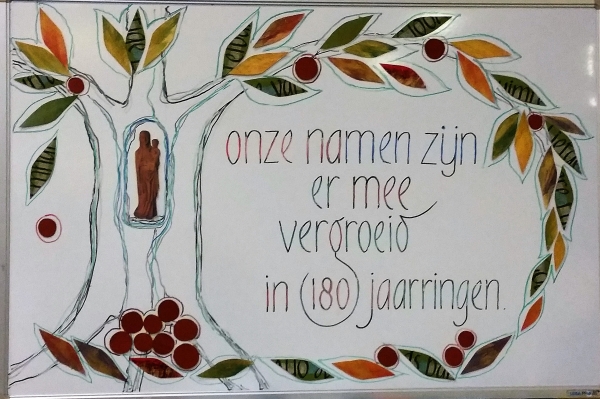 onze namen zijn
er mee
vergroeid
in (180) jaarringen.